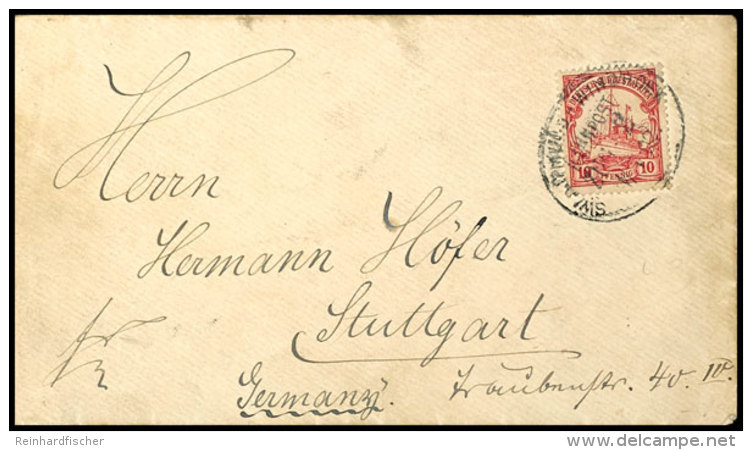 10 10
PFENNIG
BAHNPOST
Herrn
Hermann Höfer
Stuttgart
Germany. Traubenstr. 40. III.
Reinhardfischer
delcampe.net